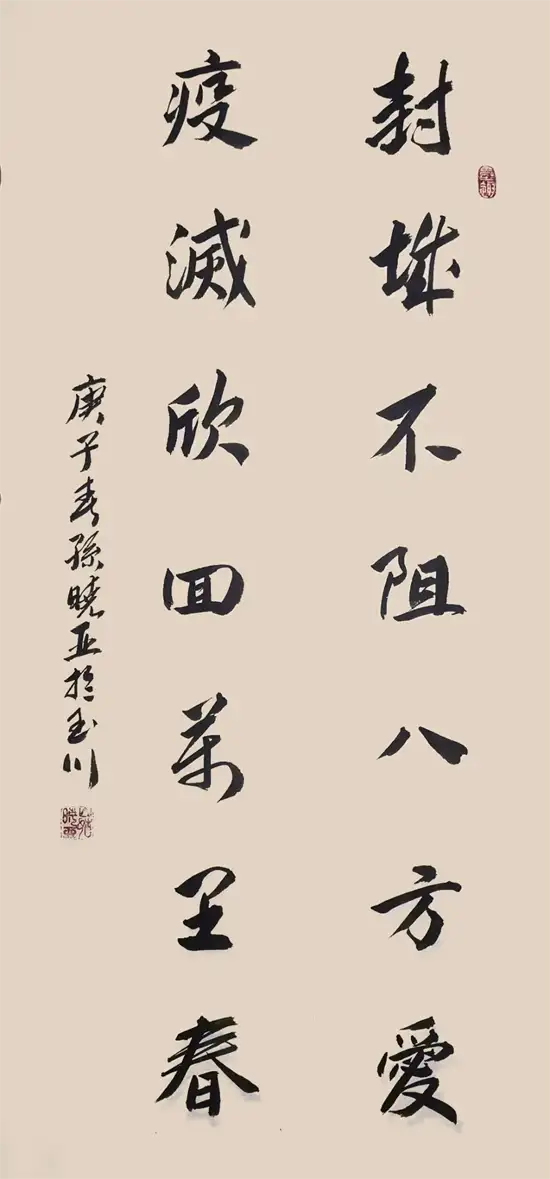 封城不阻八方愛
疫滅欣回萬里春
庚子春孫曉亚於玉川